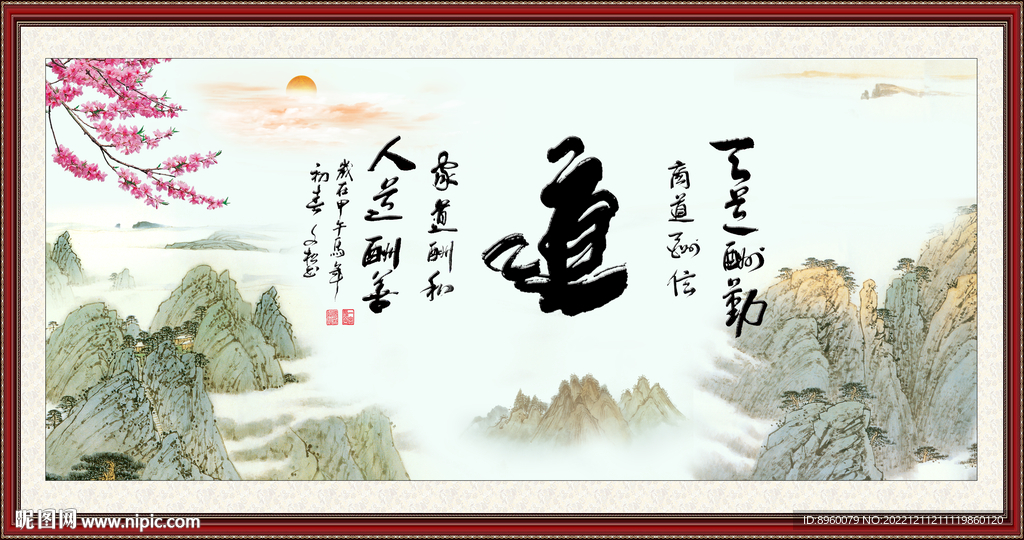 天道酬勤
商道酬信
道
家道酬和
人道酬善
歲在甲午馬年
初春
昵图网 www.nipic.com
ID:8960079 NO:20221211211119860120